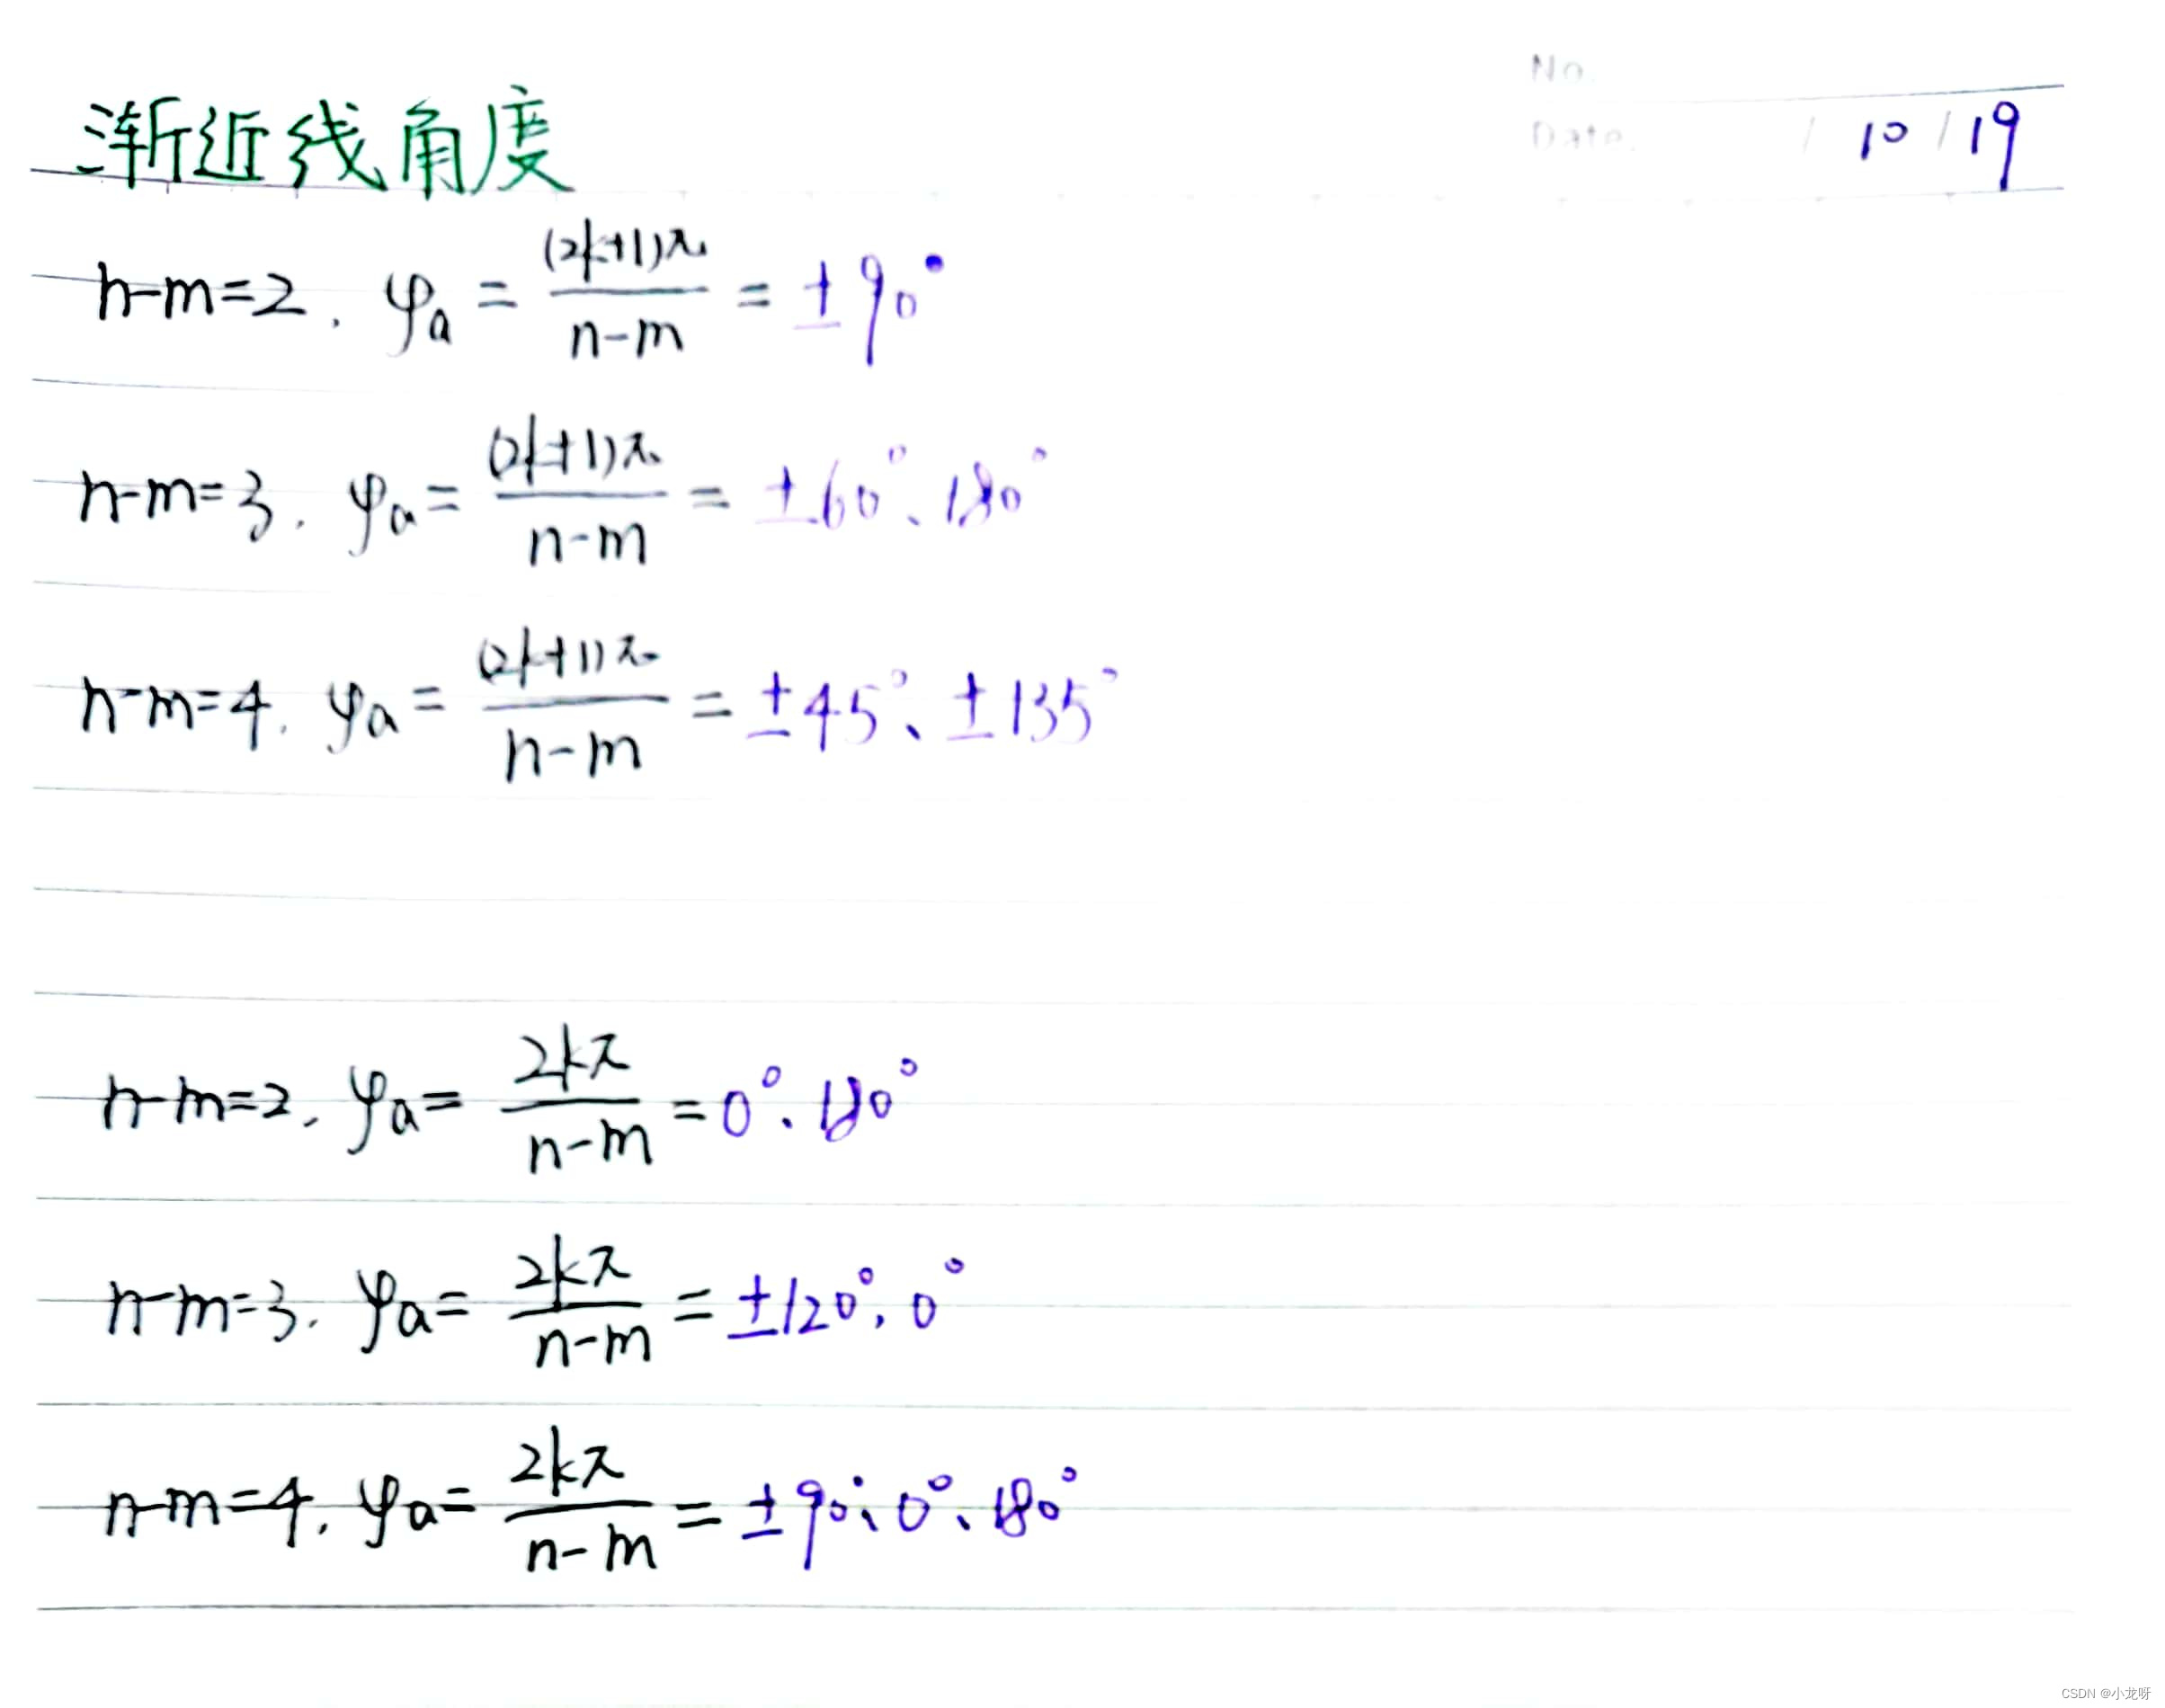 No.
Date. / 10 / 19
渐近线角度
n-m=2, φa = (2k+1)π / n-m = ±90°
n-m=3, φa = (2k+1)π / n-m = ±60°、180°
n-m=4, φa = (2k+1)π / n-m = ±45°、±135°
n-m=2, φa = 2kπ / n-m = 0°、180°
n-m=3, φa = 2kπ / n-m = ±120°, 0°
n-m=4, φa = 2kπ / n-m = ±90°、0°、180°
CSDN @小龙呀